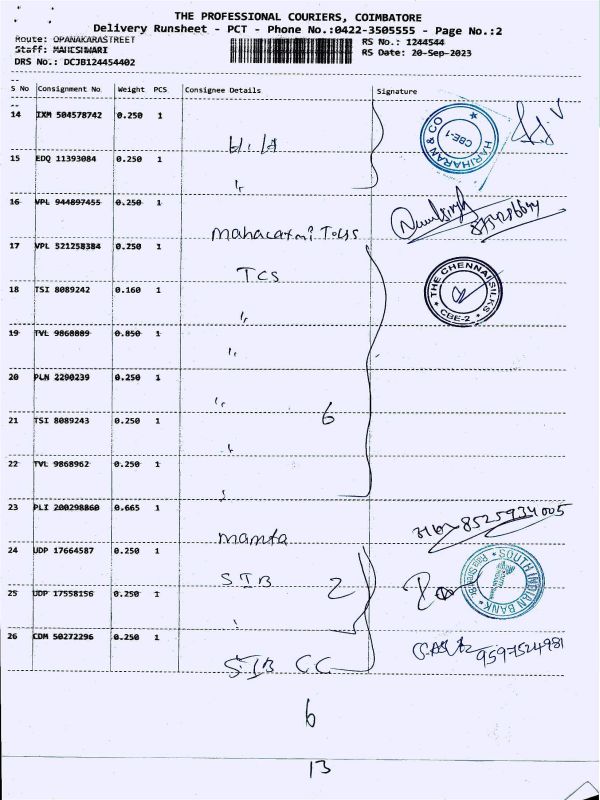 THE PROFESSIONAL COURIERS, COIMBATORE
Delivery Runsheet - PCT - Phone No.:0422-3505555 - Page No.:2
Route: OPANAKARASTREET
RS No.: 1244544
Staff: MAHESHWARI
RS Date: 20-Sep-2023
DRS No.: DCJB124454402
S No Consignment No Weight PCS Consignee Details Signature
14 IXM 504578742 0.250 1
HARIHARAN & CO
CBE-1
15 EDQ 11393084 0.250 1
16 VPL 944897455 0.250 1
17 VPL 521258384 0.250 1
TCS
THE CHENNAI SILKS
CBE-2
18 TSI 8089242 0.160 1
19 TVL 9868889 0.850 1
20 PLN 2200239 0.250 1
6
21 TSI 8089243 0.250 1
22 TVL 9868962 0.250 1
23 PLI 200298860 0.665 1
8525934005
mamta
24 UDP 17664587 0.250 1
SOUTH INDIAN BANK
SIB 2
25 UDP 17558156 0.250 1
26 CDM 50272296 0.250 1
9597524981
SIB CC
6
13